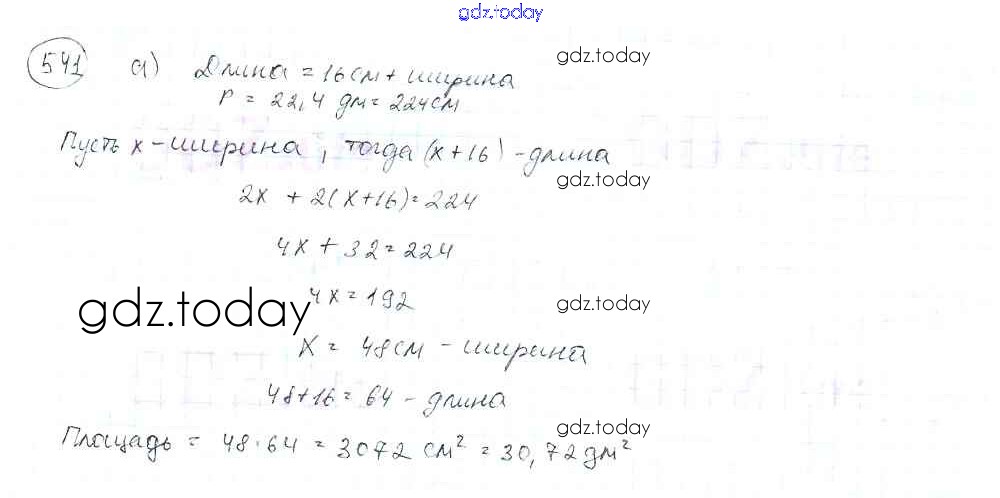 gdz.today
541 а) Длина = 16 см + ширина
gdz.today
P = 22,4 дм = 224 см
gdz.today
Пусть x - ширина, тогда (x+16) - длина
gdz.today
2x + 2(x+16) = 224
4x + 32 = 224
gdz.today
4x = 192
gdz.today
x = 48 см - ширина
48+16 = 64 - длина
gdz.today
Площадь = 48·64 = 3072 см² = 30,72 дм²